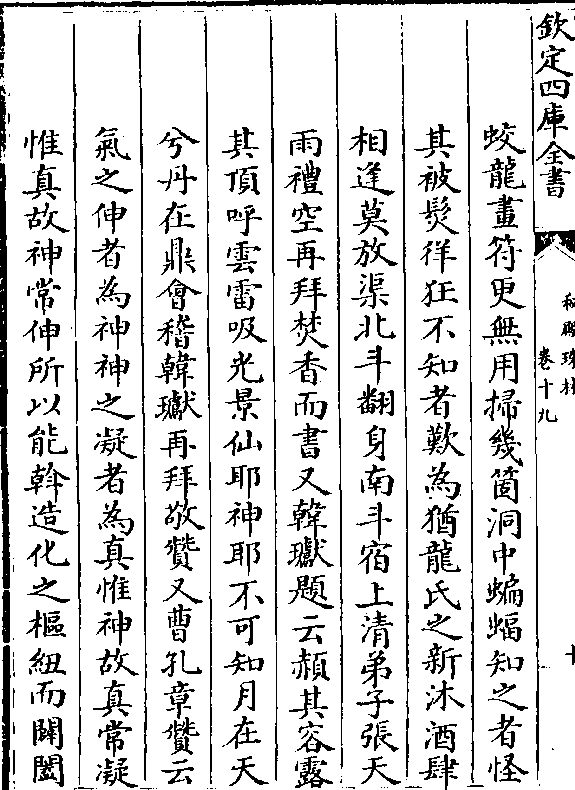 欽定四庫全書
卷十九
蛟龍畫符更無用掃幾箇洞中蝙蝠知之者怪
其被髮徉狂不知者歎為猶龍氏之新沐酒肆
相逢莫放渠北斗翻身南斗宿上清弟子張天
雨禮空再拜焚香而書又韓璵題云頳其容露
其頂呼雲雷吸光景仙耶神耶不可知月在天
兮丹在鼎會稽韓璵再拜敬贊又曹孔章贊云
氣之伸者為神神之凝者為真惟神故真常凝
惟真故神常伸所以能斡造化之樞紐而闢闔